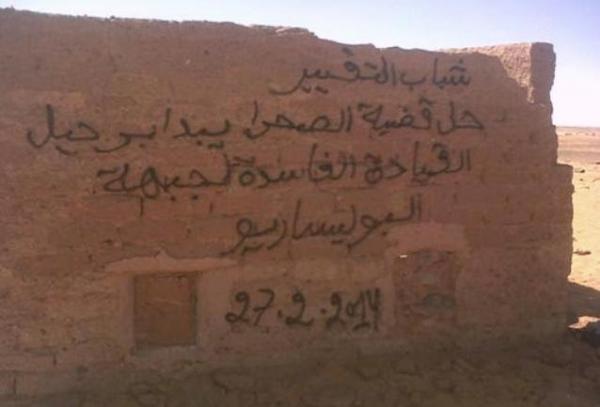 شباب التغيير
حل قضية الصحرا يبدا برحيل
القيادة الفاسدة لجبهة
البوليساريو
27.2.2014